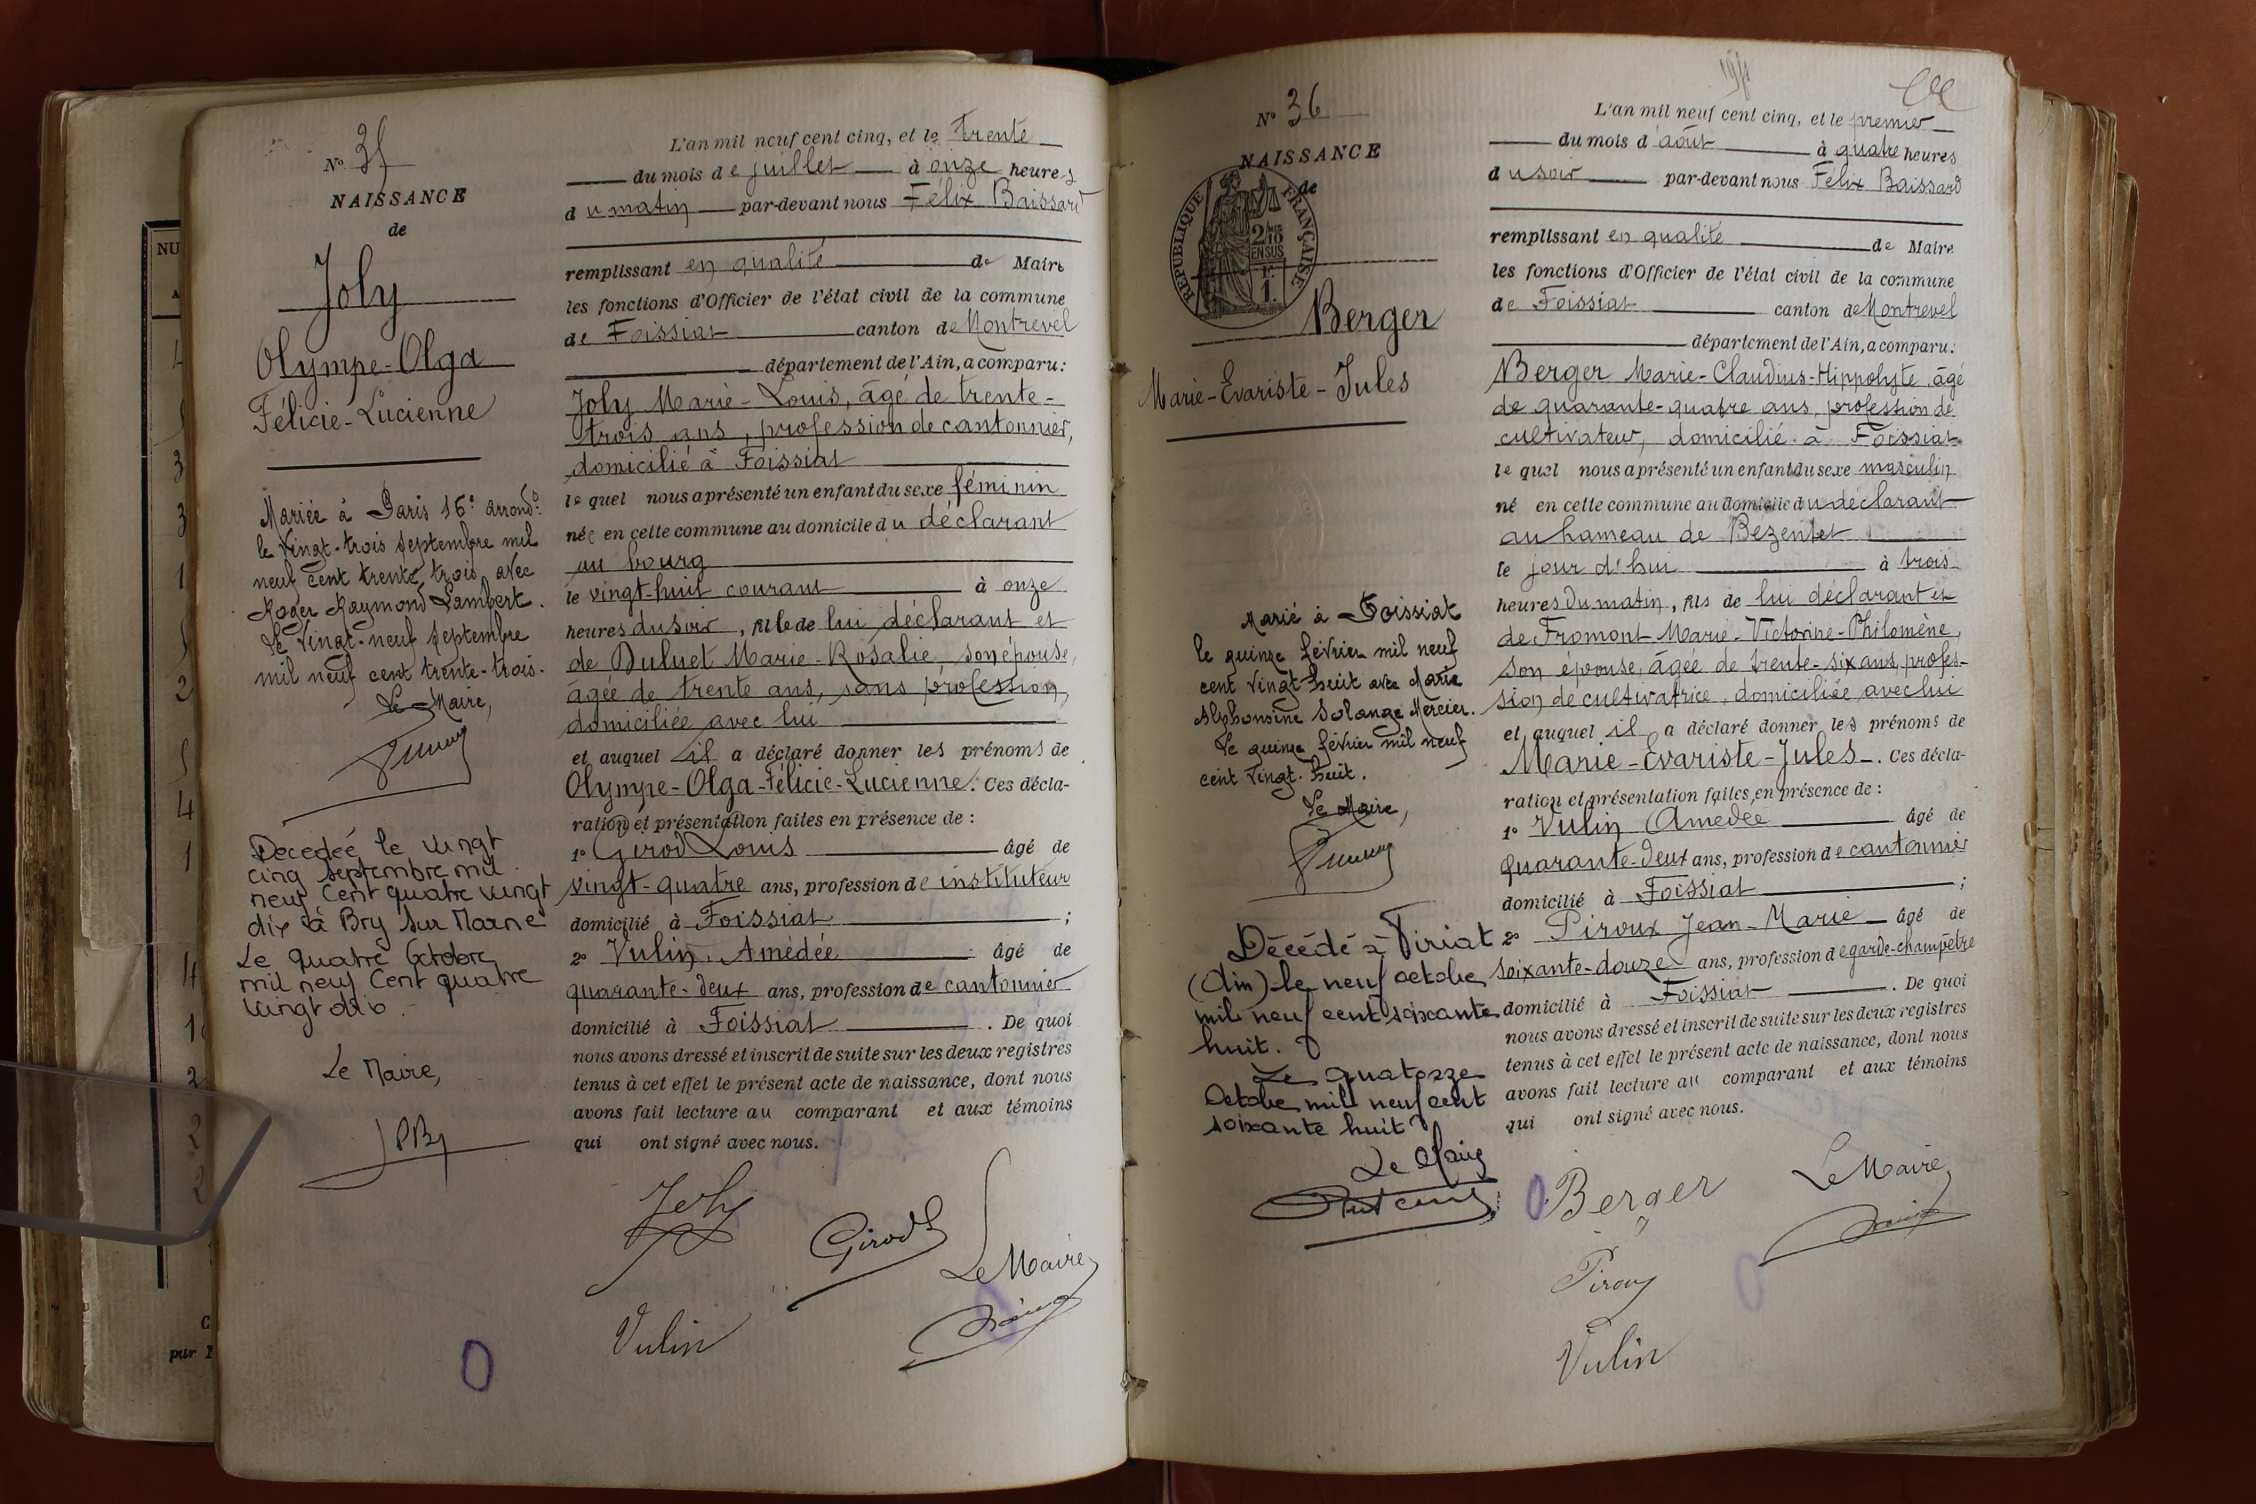 N° 35
NAISSANCE
de
Joly
Olympe-Olga
Félicie-Lucienne
Mariée à Paris 16e arrondt
le vingt-trois septembre mil
neuf cent trente trois avec
Roger Raymond Lambert.
Le vingt-neuf septembre
mil neuf cent trente-trois.
Le Maire,
Décédée le vingt
cinq septembre mil
neuf cent quatre vingt
dix à Bry sur Marne
Le quatre Octobre
mil neuf cent quatre
vingt dix.
Le Maire,
L'an mil neuf cent cinq, et le trente
du mois de juillet à onze heures
du matin par-devant nous Félix Baissard
remplissant en qualité de Maire
les fonctions d'Officier de l'état civil de la commune
de Foissiat canton de Montrevel
département de l'Ain, a comparu:
Joly Marie-Louis, âgé de trente-
trois ans, profession de cantonnier,
domicilié à Foissiat
lequel nous a présenté un enfant du sexe féminin
née en cette commune au domicile du déclarant
au bourg
le vingt-huit courant à onze
heures du soir, fille de lui déclarant et
de Duluet Marie-Rosalie, son épouse,
âgée de trente ans, sans profession,
domiciliée avec lui
et auquel il a déclaré donner les prénoms de
Olympe-Olga-Félicie-Lucienne. Ces décla-
ration et présentation faites en présence de :
1° Girod Louis âgé de
vingt-quatre ans, profession de instituteur
domicilié à Foissiat ;
2° Vulin Amédée âgé de
quarante-deux ans, profession de cantonnier
domicilié à Foissiat . De quoi
nous avons dressé et inscrit de suite sur les deux registres
tenus à cet effet le présent acte de naissance, dont nous
avons fait lecture au comparant et aux témoins
qui ont signé avec nous.
Joly
Girod L
Le Maire
Vulin
N° 36
NAISSANCE
de
RÉPUBLIQUE FRANÇAISE
2/10
EN SUS
F.
1.
Berger
Marie-Evariste-Jules
Marié à Foissiat
le quinze février mil neuf
cent vingt-huit avec Marie
Alphonsine Solange Mercier.
Le quinze février mil neuf
cent vingt-huit.
Le Maire,
Décédé à Viriat
(Ain) le neuf octobre
mil neuf cent soixante
huit.
Le quatorze
Octobre mil neuf cent
soixante huit
Le Maire
L'an mil neuf cent cinq, et le premier
du mois d'août à quatre heures
du soir par-devant nous Félix Baissard
remplissant en qualité de Maire
les fonctions d'Officier de l'état civil de la commune
de Foissiat canton de Montrevel
département de l'Ain, a comparu:
Berger Marie-Claudius-Hippolyte, âgé
de quarante-quatre ans, profession de
cultivateur, domicilié à Foissiat
lequel nous a présenté un enfant du sexe masculin
né en cette commune au domicile du déclarant
au hameau de Bezentet
le jour d'hui à trois
heures du matin, fils de lui déclarant et
de Fromont Marie-Victorine-Philomène,
son épouse, âgée de trente-six ans, profes-
sion de cultivatrice, domiciliée avec lui
et auquel il a déclaré donner les prénoms de
Marie-Evariste-Jules. Ces décla-
ration et présentation faites en présence de :
1° Vulin Amédée âgé de
quarante-deux ans, profession de cantonnier
domicilié à Foissiat ;
2° Piroux Jean-Marie âgé de
soixante-douze ans, profession de garde-champêtre
domicilié à Foissiat . De quoi
nous avons dressé et inscrit de suite sur les deux registres
tenus à cet effet le présent acte de naissance, dont nous
avons fait lecture au comparant et aux témoins
qui ont signé avec nous.
Berger
Le Maire
Piroux
Vulin